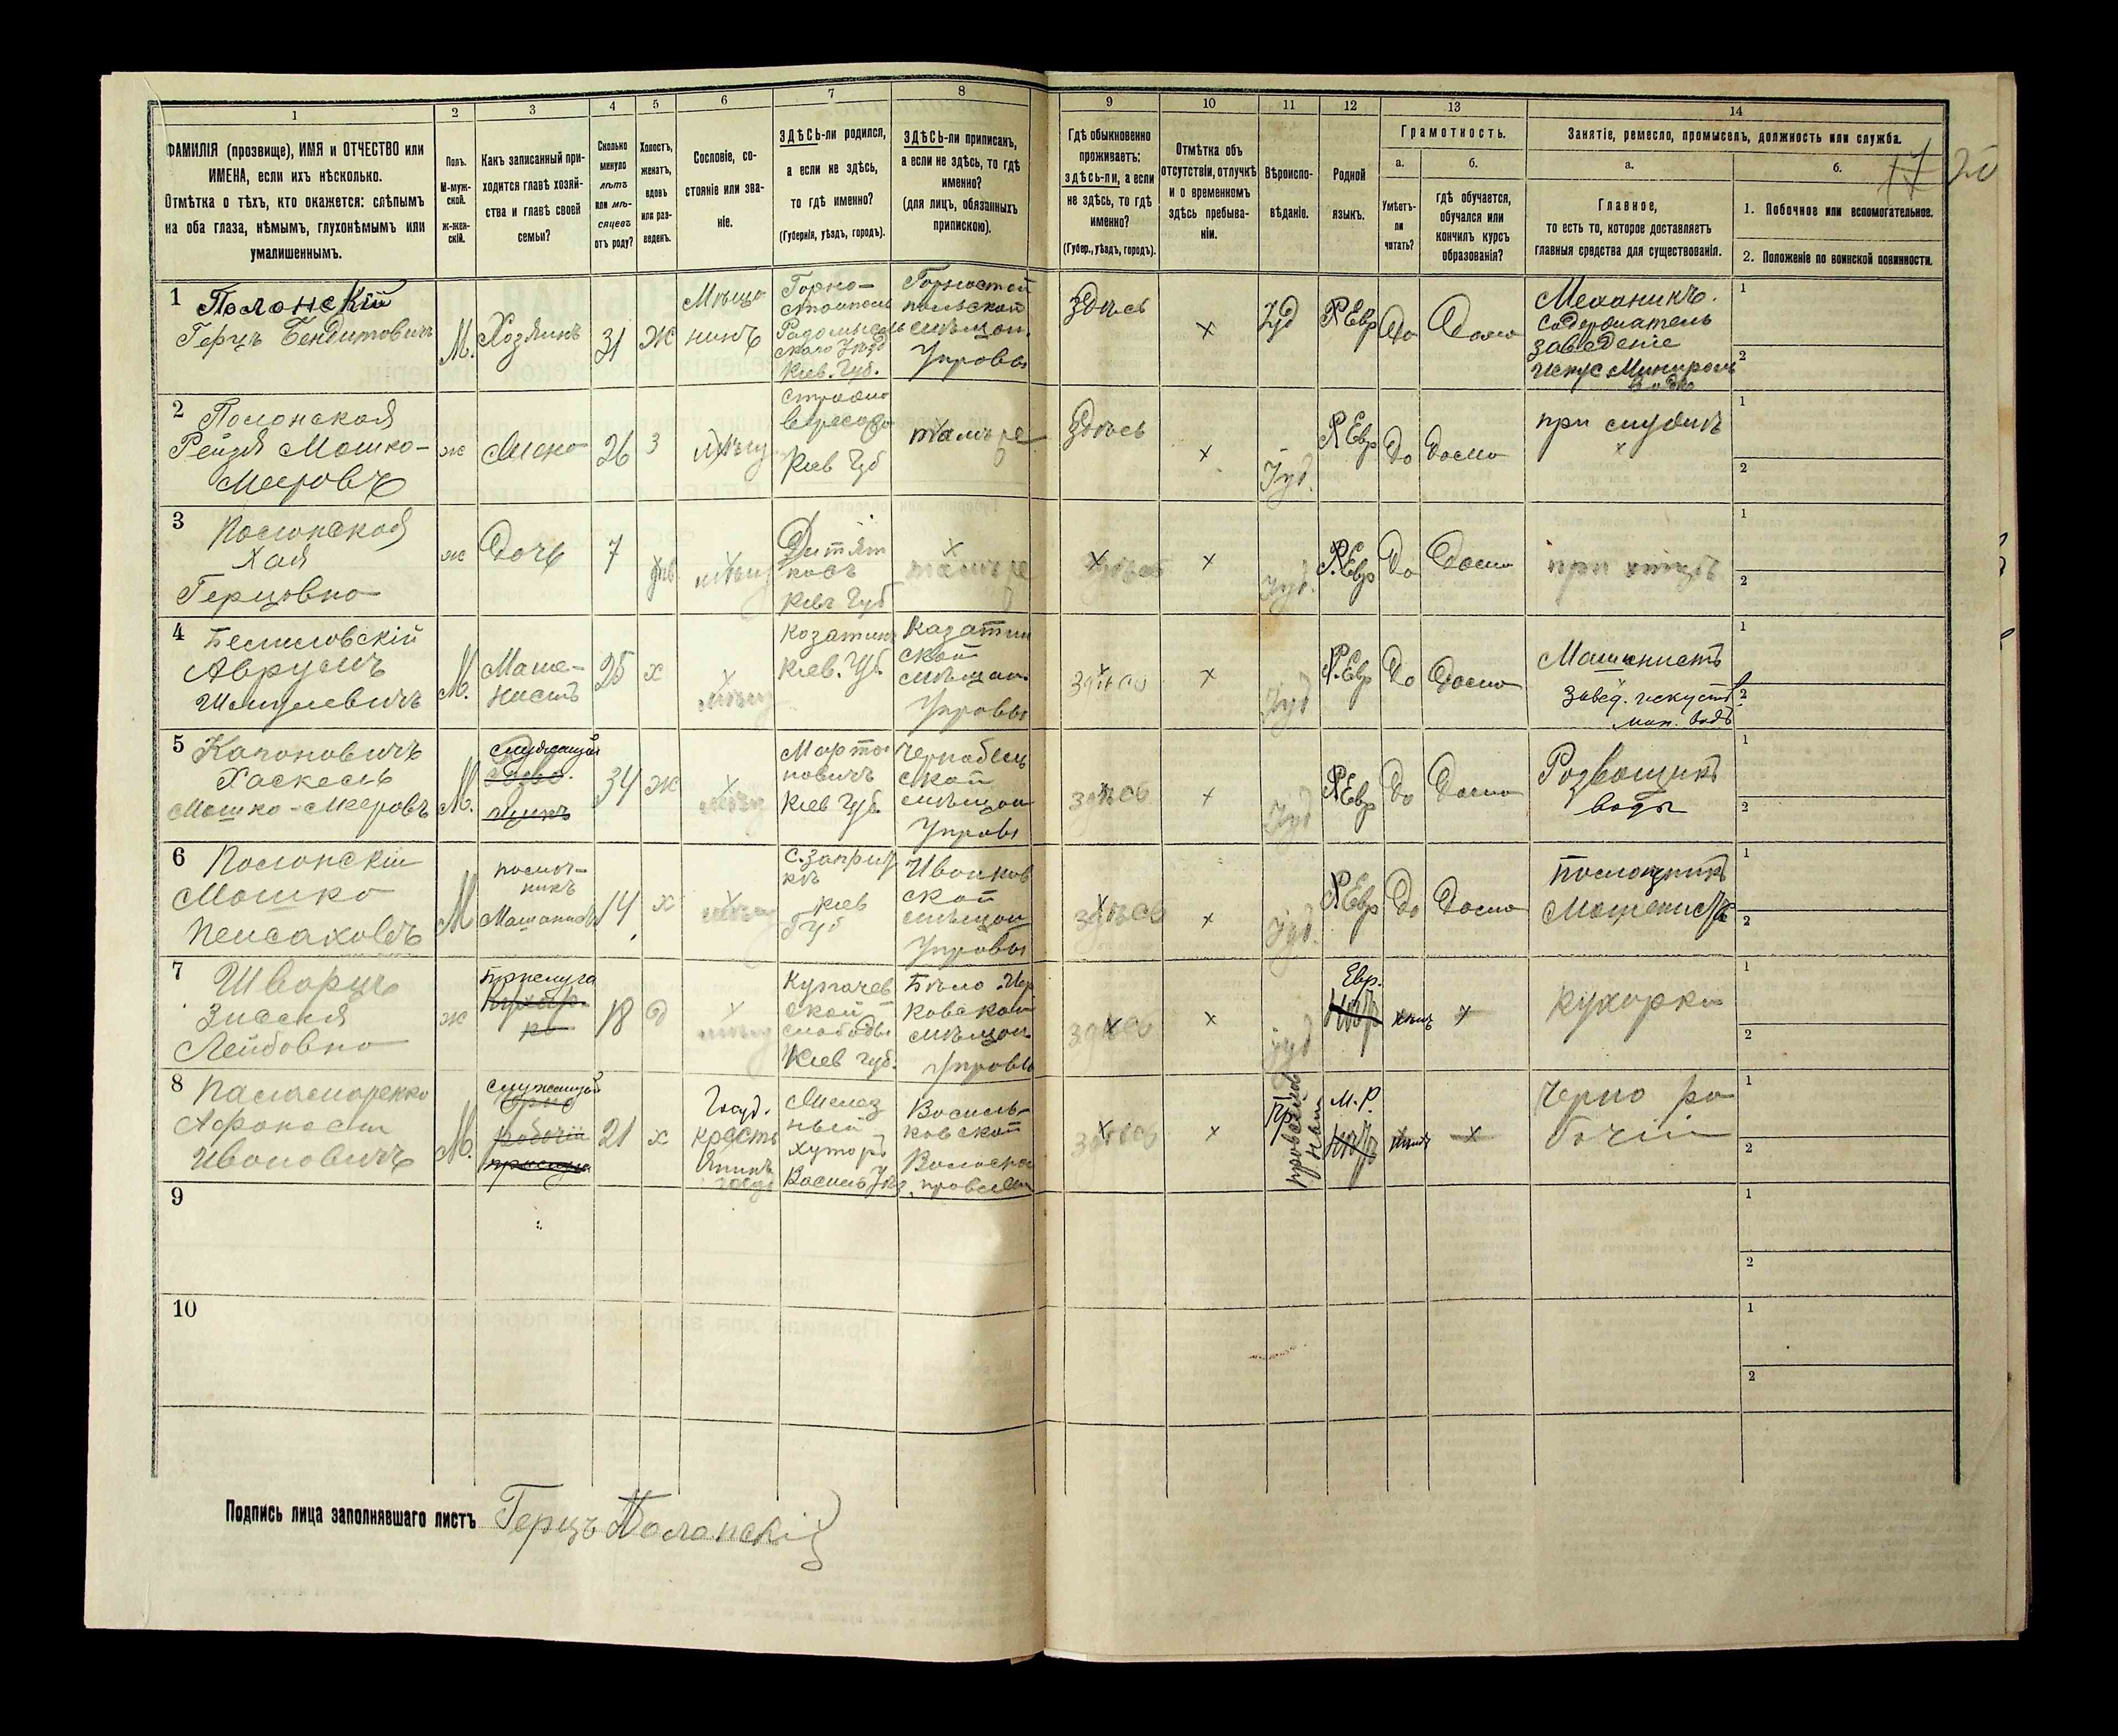 1
2
3
4
5
6
7
8
9
10
11
12
13
14
ФАМИЛІЯ (прозвище), ИМЯ и ОТЧЕСТВО или
ИМЕНА, если ихъ нѣсколько.
Отмѣтка о тѣхъ, кто окажется: слѣпымъ
на оба глаза, нѣмымъ, глухонѣмымъ или
умалишеннымъ.
Полъ.
М-муж-
ской.
Ж-жен-
скій.
Какъ записанный при-
ходится главѣ хозяй-
ства и главѣ своей
семьи?
Сколько
минуло
лѣтъ
или мѣ-
сяцевъ
отъ роду?
Холостъ,
женатъ,
вдовъ
или раз-
веденъ.
Сословіе, со-
стояніе или зва-
ніе.
ЗДѢСЬ-ли родился,
а если не здѣсь,
то гдѣ именно?
(Губернія, уѣздъ, городъ).
ЗДѢСЬ-ли приписанъ,
а если не здѣсь, то гдѣ
именно?
(для лицъ, обязанныхъ
припискою).
Гдѣ обыкновенно
проживаетъ:
здѣсь-ли, а если
не здѣсь, то гдѣ
именно?
(Губер., уѣздъ, городъ).
Отмѣтка объ
отсутствіи, отлучкѣ
и о временномъ
здѣсь пребыва-
ніи.
Вѣроиспо-
вѣданіе.
Родной
языкъ.
Грамотность.
а.
Умѣетъ-
ли
читать?
б.
гдѣ обучается,
обучался или
кончилъ курсъ
образованія?
Занятіе, ремесло, промыселъ, должность или служба.
а.
Главное,
то есть то, которое доставляетъ
главныя средства для существованія.
б.
1. Побочное или вспомогательное.
2. Положеніе по воинской повинности.
17 20
1 Полонскій
Герцъ Бендитовичъ
М.
Хозяинъ
31
Ж
Мѣща
нинъ
Горно-
стайполь
Радомысль
скаго Уѣзд
Кіев. Губ.
Горностай
польской
мѣщан.
Управы
Здѣсь
х
Іуд
Р Евр
Да
Дома
Механикъ.
Содержатель
заведеніе
искус Минирал
водъ
1
2
2 Полонская
Рейзя Мошко-
Мееровъ
ж
Жена
26
З
мѣщ
Кіев Губ
тамъ же
Здѣсь
х
Іуд.
Р Евр
Да
Дома
при мужѣ
х
1
2
3 Полонская
Хая
Герцовна
ж
Дочь
7
мѣщ
Дитят
ковъ
Кіев Губ
х
тамъ же
здѣсь
х
Іуд.
Р. Евр
Да
Дома
1
2
4
Аврумъ
М.
Маши-
нистъ
25
х
мѣщ
Козатин
Кіев. Губ
Казатин
ской
мѣщан.
Управы
здѣсь
х
Іуд
Р. Евр
Да
Дома
Машинистъ
завед. искуств
мин. водъ
1
2
5
Хаскель
Мошко-Мееровъ
М.
служащій
34
ж
мѣщ
Марты
новичъ
Кіев Губ.
Чернобыль
ской
мѣщан
Управы
здѣсь
х
Іуд
Р Евр
Да
Дома
Розвощикъ
воды
1
2
6 Полонскій
Мошко
Пейсаховъ
М
помощ-
никъ
Машиниста
14
х
мѣщ
кіев
Губ
Иванков
ской
мѣщан
Управы
здѣсь
х
Іуд.
Р Евр
Да
Дома
Помощникъ
Машениста
1
2
7 Шварцъ
Зисля
Лейбовна
ж
Прислуга
Кухар-
ка
18
д
мѣщ
слободы
Кіев губ.
Бѣло Цер
ковской
мѣщан.
Управы
здѣсь
х
Іуд
Евр.
х
Кухорка
1
2
8 Паламаренко
Афанасій
Ивановичъ
М.
служащій
Черно
робочій
прислуга
21
х
Госуд.
крестъ
хуторъ
Васильк
Василь-
ковской
Волосно
правлен
здѣсь
х
Православ
ная
М. Р.
х
Черно ра
бочій
1
2
9
1
2
10
1
2
Подпись лица заполнявшаго листъ Герцъ Полонскій